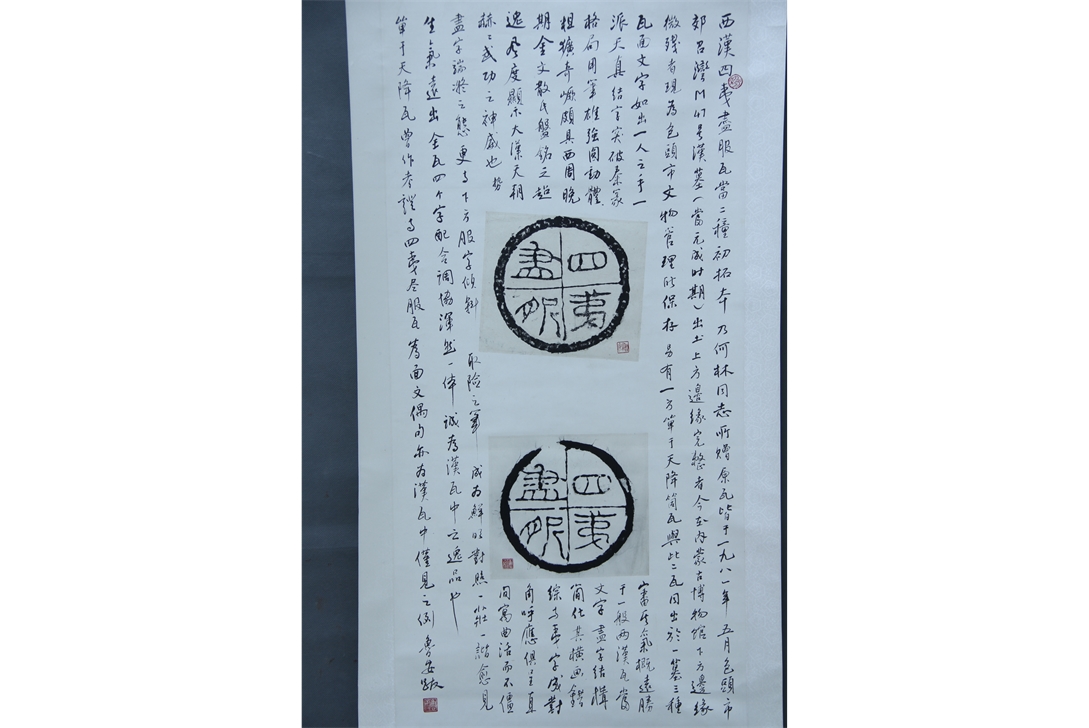 西漢四夷盡服瓦當二種初拓本乃何林同志所贈原瓦皆于一九八一年五月包頭市
郊召灣M47号漢墓(當元成时期)出土上方邊缘完整者今在内蒙古博物馆下方邊缘
微缺者现為包頭市文物管理所保存另有一方單于天降筒瓦與此二瓦同出於一墓三種
瓦面文字如出一人之手一
派天真結字突破秦篆
格局用筆雄強圓勁體
粗獷奇恢頗具西周晚
期金文散氏盤銘之超
逸風度顯示大漢天朝
赫々武功之神威也
四夷
盡服
四夷
盡服
審其氣概遠勝
于一般兩漢瓦當
文字盡字结構
简化其横画錯
综与夷字成對
角呼應俱主直
间寓曲活而不僵
盡字端凝之態更与下方服字傾斜取險之筆成为鮮明對照一壮一諧愈見
生氣遠出全瓦四个字配合調協渾然一体誠為漢瓦中之逸品也
單于天降瓦曾作考證与四夷尽服瓦當面文偶句亦为漢瓦中僅見之例